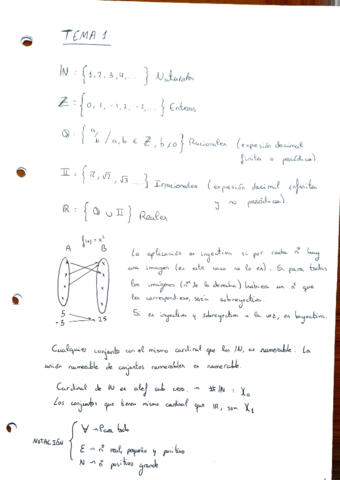 TEMA 1
ℕ = {1, 2, 3, 4, ...} Naturales
ℤ = {0, 1, -1, 2, -2, ...} Enteros
ℚ = {a/b / a, b ∈ ℤ, b ≠ 0} Racionales (expresión decimal
finita o periódica).
𝕀 = {π, √2, √3 ...} Irracionales (expresión decimal infinita
y no periódica).
ℝ = {ℚ ∪ 𝕀} Reales
f(x) = x²
A B
La aplicación es inyectiva si por cada nº hay
una imagen (en este caso no lo es). Si para todas
las imágenes (nº de la derecha) hubiera un nº que
les correspondiera, sería sobreyectiva.
Si es inyectiva y sobreyectiva a la vez, es biyectiva.
5
-5 25
Cualquier conjunto con el mismo cardinal que los ℕ, es numerable. La
unión numerable de conjuntos numerables es numerable.
Cardinal de ℕ es alef sub cero. → #ℕ = ℵ₀
Los conjuntos que tienen mismo cardinal que ℝ, son ℵ₁
NOTACIÓN
∀ → Para todo
ε → nº real, pequeño y positivo
N → nº positivo grande